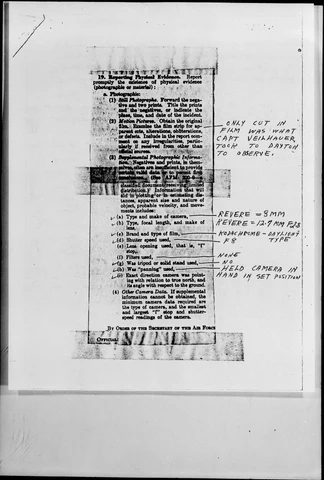 19. Reporting Physical Evidence. Report
promptly the existence of physical evidence
(photographic or material):
a. Photographic:
(1) Still Photographs. Forward the nega-
tive and two prints. Title the prints
and the negatives, or indicate the
place, time, and date of the incident.
(2) Motion Pictures. Obtain the original
film. Examine the film strip for ap-
parent cuts, alterations, obliterations,
or defects. Include in the report com-
ment on any irregularities, partic-
ularly if received from other than
official sources.
ONLY CUT IN
FILM WAS WHAT
CAPT VEILHAUER
TOOK TO DAYTON
TO OBSERVE.
(3) Supplemental Photographic Informa-
tion. Negatives and prints, in them-
selves, often are insufficient to provide
certain valid data or to permit firm
classified document receiving limited
distribution.) Information that will
aid in plotting or in estimating dis-
tances, apparent size and nature of
object, probable velocity, and move-
ments includes:
(a) Type and make of camera, REVERE - 8MM
(b) Type, focal length, and make of
lens. REVERE - 12.7 MM
(c) Brand and type of film, KODACHROME - DAYLIGHT TYPE
(d) Shutter speed used, F8
(e) Lens opening used, that is, "f"
stop,
(f) Filters used, NONE
(g) Was tripod or solid stand used, NO
(h) Was "panning" used, HELD CAMERA IN
HAND IN SET POSITION
(i) Exact direction camera was point-
ing with relation to true north, and
its angle with respect to the ground.
(4) Other Camera Data. If supplemental
information cannot be obtained, the
minimum camera data required are
the type of camera, and the smallest
and largest "f" stop and shutter-
speed readings of the camera.
BY ORDER OF THE SECRETARY OF THE AIR FORCE
OFFICIAL: